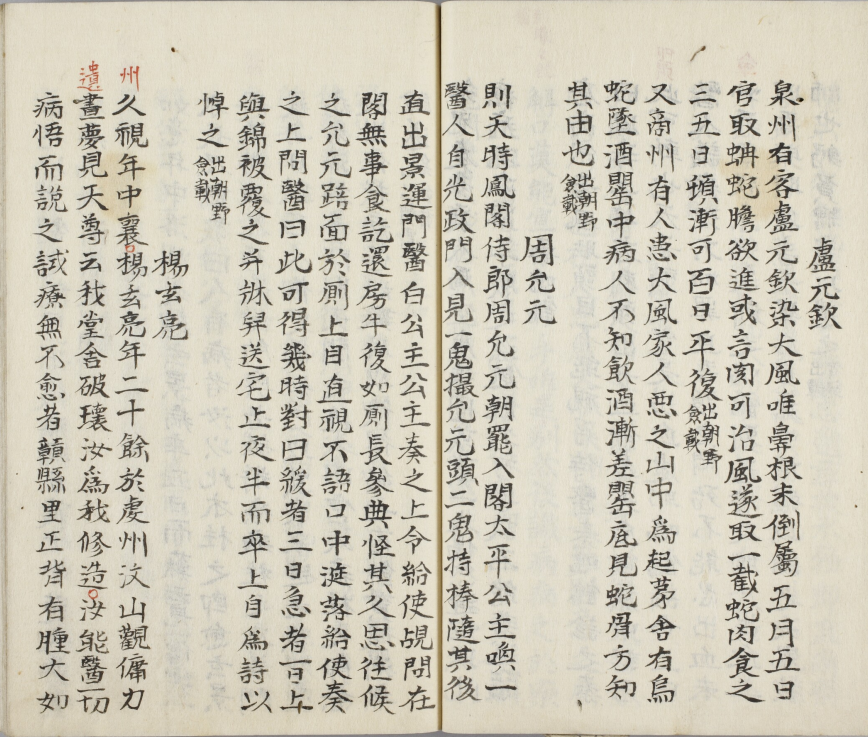 盧元欽
泉州有客盧元欽染大風唯鼻根未倒屬五月五日
官取蚺蛇膽欲進或言肉可治風遂取一截蛇肉食之
三五日頓漸可百日平復出朝野僉載
又商州有人患大風家人惡之山中為起茅舍有烏
蛇墜酒罌中病人不知飲酒漸差罌底見蛇骨方知
其由也出朝野僉載
周允元
則天時鳳閣侍郎周允元朝罷入閣太平公主喚一
醫人自光政門入見一鬼撮允元頭二鬼持棒隨其後
直出景運門醫白公主公主奏之上令給使覘問在
閣無事食訖還房午復如厠長參典怪其久思往候
之允元踣面於厠上目直視不語口中涎落給使奏
之上問醫曰此可得幾時對曰緩者三日急者一日上
與錦被覆之并牀舁送宅止夜半而卒上自為詩以
悼之出朝野僉載
楊玄亮
州
久視年中襄楊玄亮年二十餘於虔州汶山觀傭力
遺
晝夢見天尊云我堂舍破壞汝為我修造汝能醫一切
病悟而說之試療無不愈者贑縣里正背有腫大如